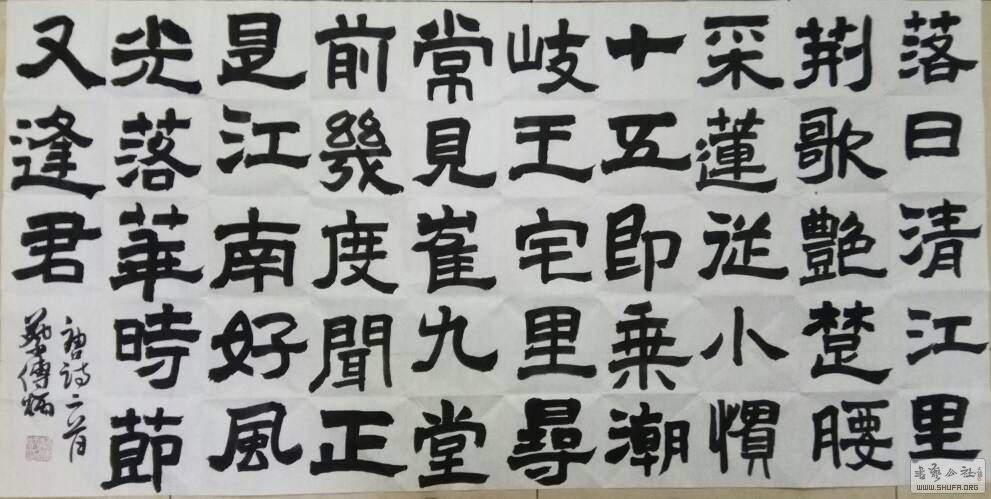 落日清江里
荆歌艶楚腰
采蓮従小慣
十五即乗潮
岐王宅里尋
常見崔九堂
前幾度聞正
是江南好風
光落華時節
又逢君
唐詩二首
书艺公社
WWW.SHUFA.ORG